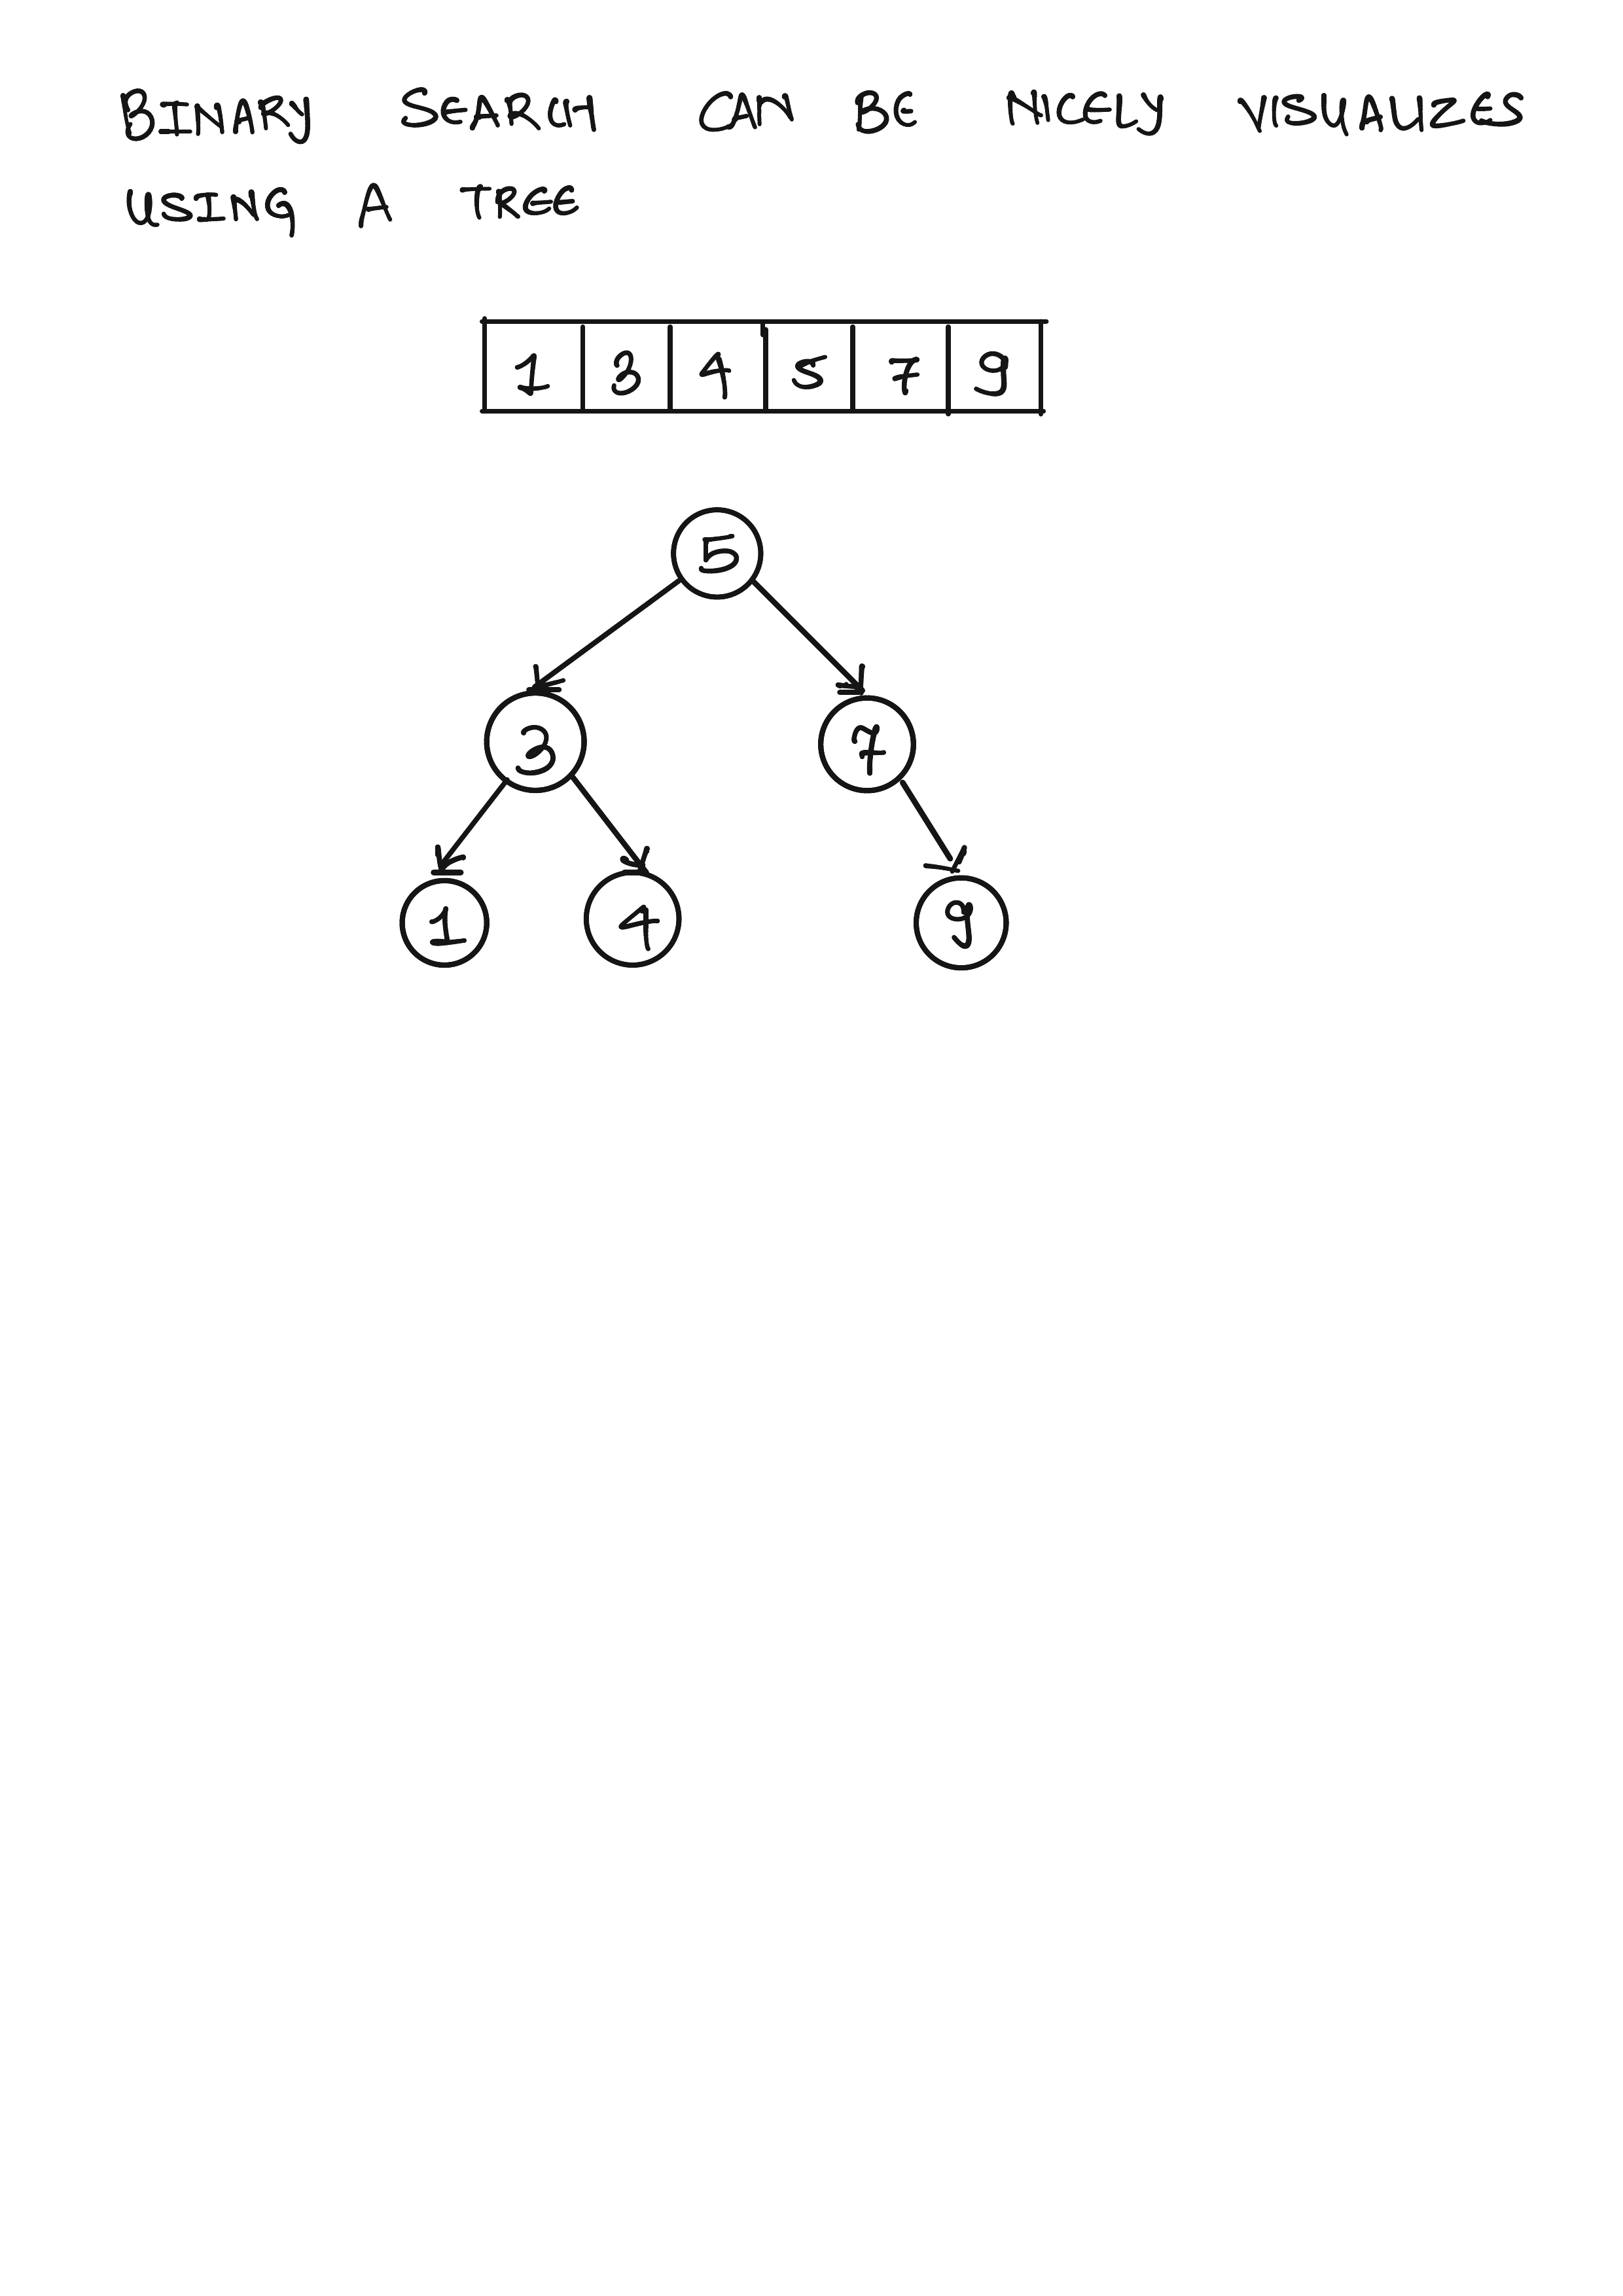 BINARY SEARCH CAN BE NICELY VISUALIZES
USING A TREE
1 3 4 5 7 9
5
3 7
1 4 9